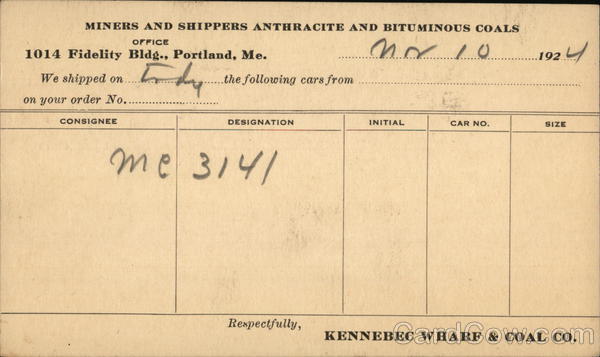 MINERS AND SHIPPERS ANTHRACITE AND BITUMINOUS COALS
OFFICE
1014 Fidelity Bldg., Portland, Me. Nov 10 1924
We shipped on tody the following cars from
on your order No.
CONSIGNEE DESIGNATION INITIAL CAR NO. SIZE
MC 3141
Respectfully,
KENNEBEC WHARF & COAL CO.
CardCow.com